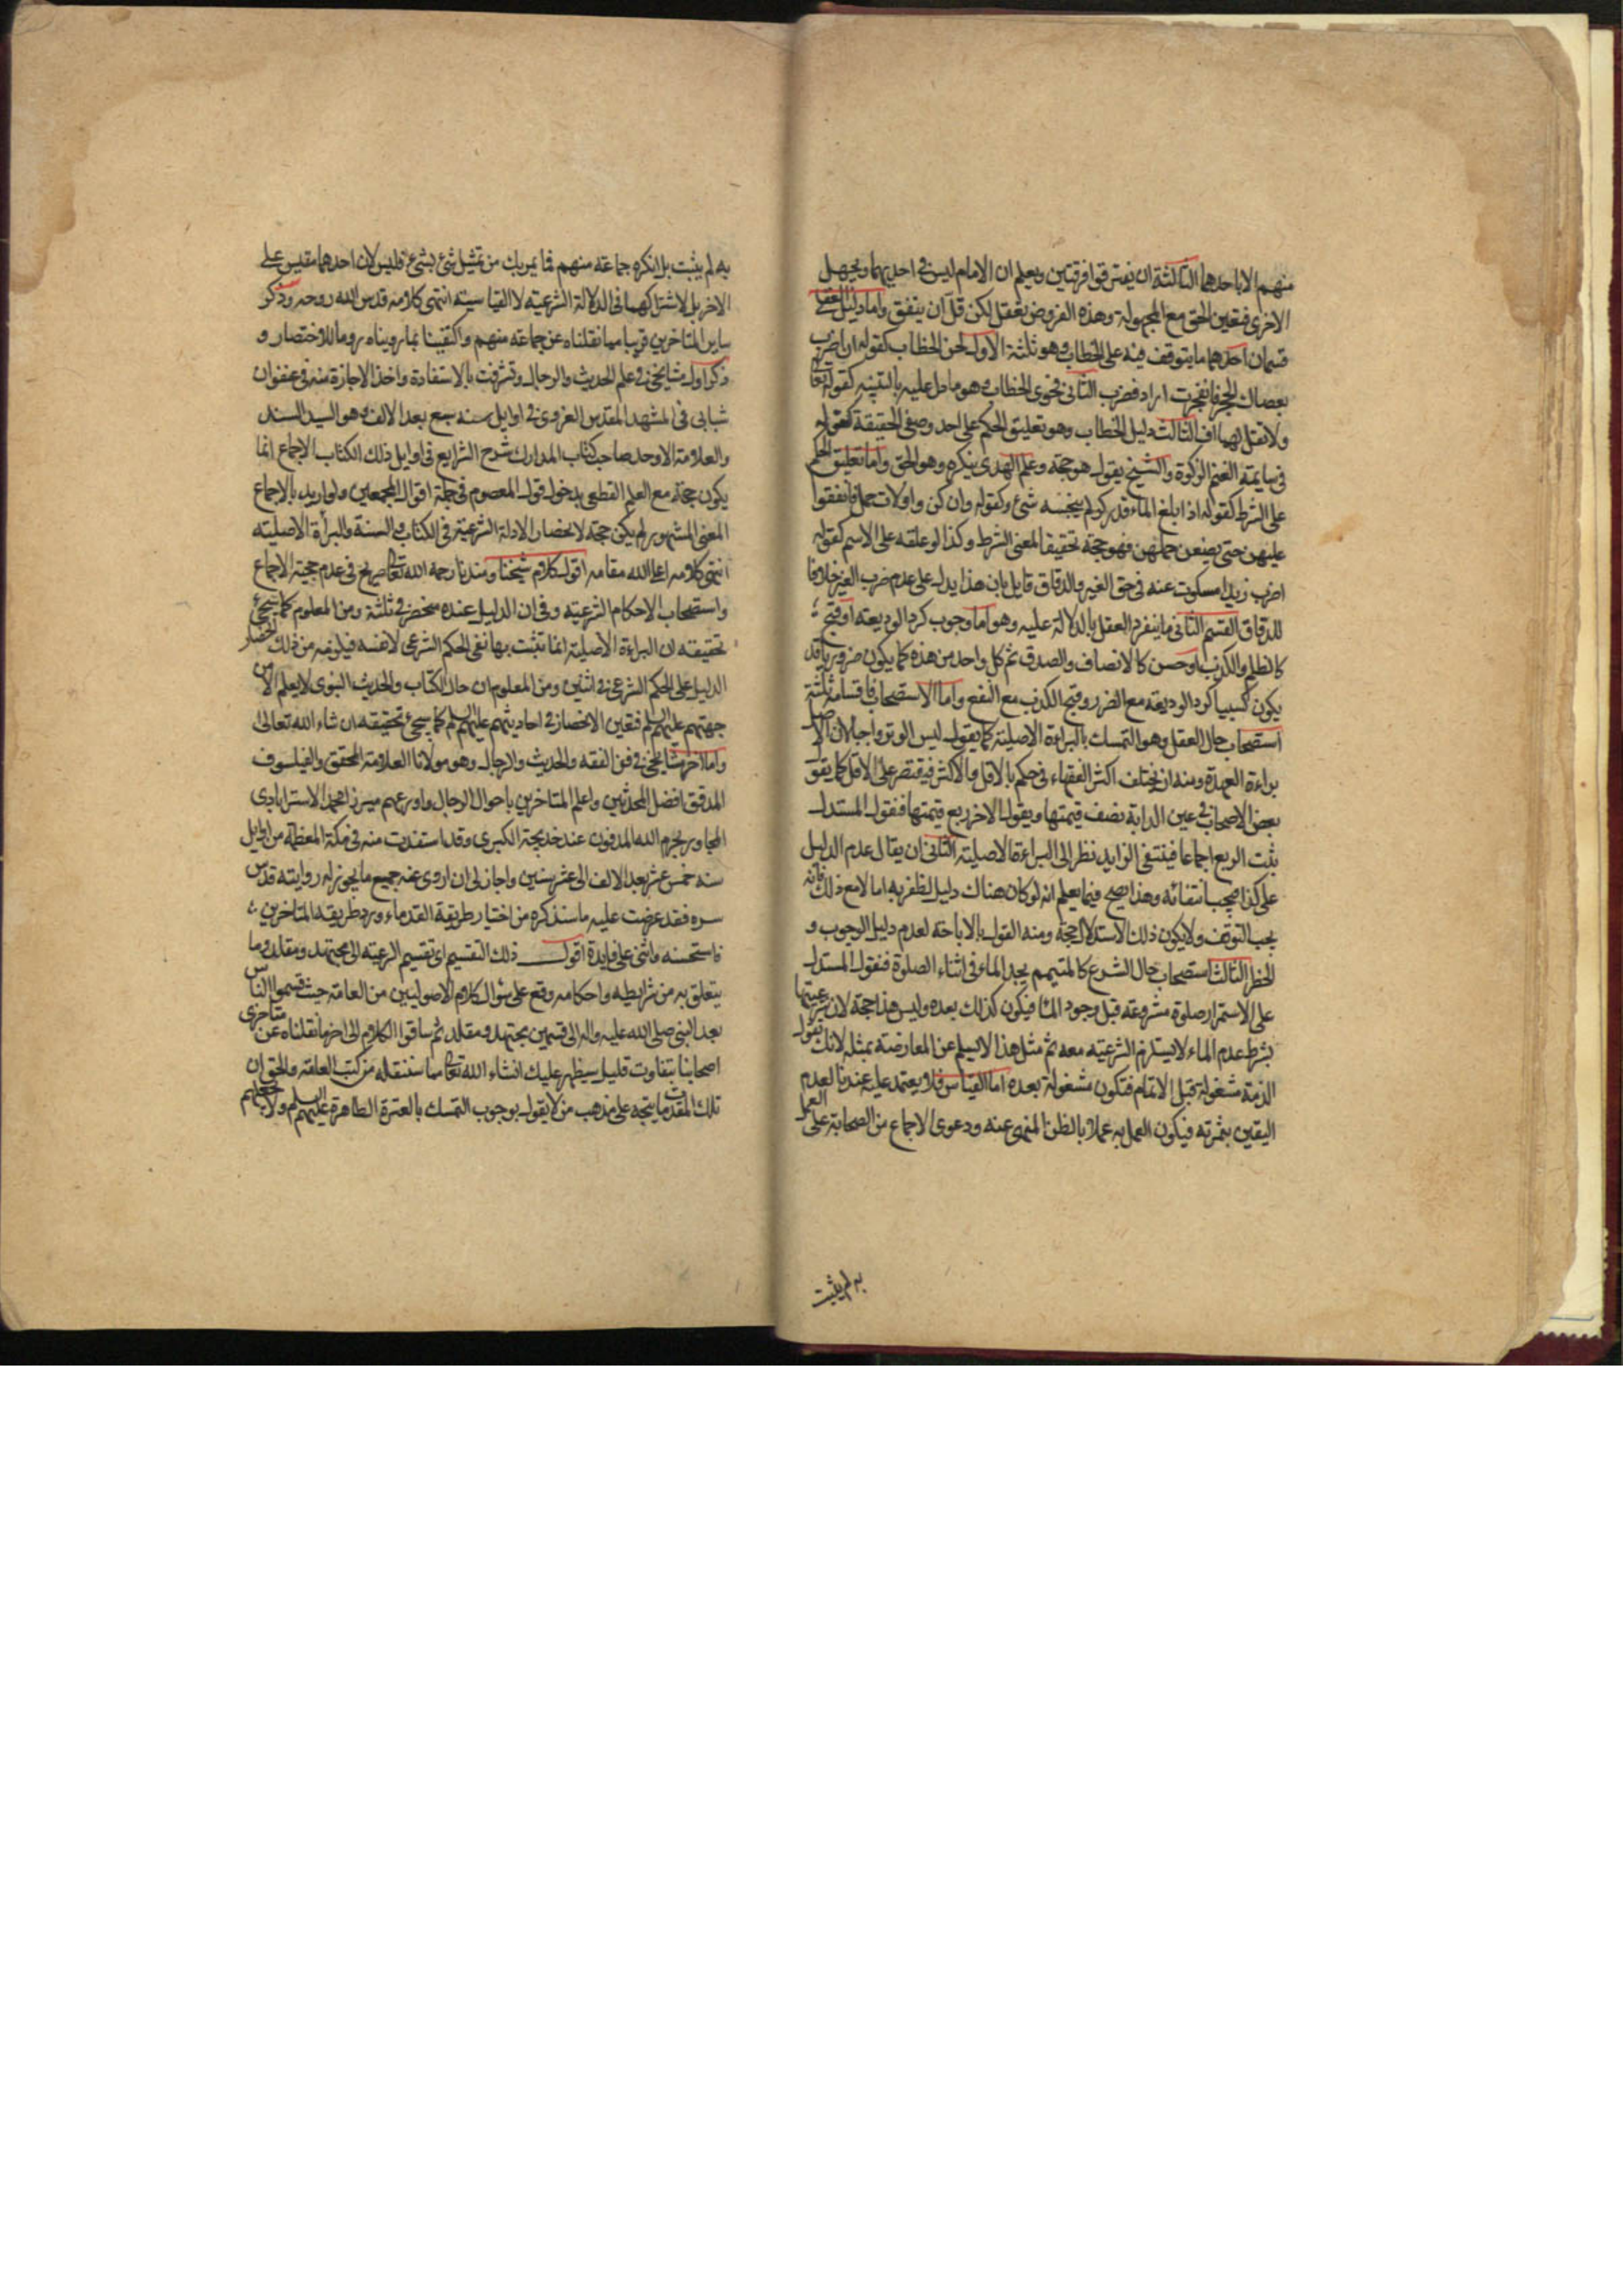 منهم الا باحدهما الثالثة ان يفترقوا فرقتين ويعلم ان الامام ليس في احديهما ويجهل
الاخرى فتعين الحق مع المجهولة وهذه الفروض تعقل لكن قل ان يتفق واما دليل العقل
قسمان احدهما ما يتوقف فيه على الخطاب وهو ثلثة الاول لحن الخطاب كقوله ان اضرب
بعصاك الحجر فانفجرت اراد فضرب الثاني فحوى الخطاب وهو ما دل عليه بالتنبيه كقوله تعالى
ولا تقل لهما اف الثالث دليل الخطاب وهو تعليق الحكم على احد وصفي الحقيقة كقوله
في سايمة الغنم الزكوة والشيخ يقول هو حجة وعلم الهدى ينكره وهو الحق واما تعليق الحكم
على الشرط كقوله اذا بلغ الماء قدر كر لم ينجسه شئ وكقوله وان كن واولات حمل فانفقوا
عليهن حتى يضعن حملهن فهو حجة تحقيقا لمعنى الشرط وكذا لو علقه على الاسم كقوله
اضرب زيدا مسكوت عنه في حق الغير والدقاق قايل بان هذا يدل على عدم ضرب الغير خلافا
للدقاق القسم الثاني ما ينفرد العقل بالدلالة عليه وهو اما وجوب كرد الوديعة او قبح
كالظلم والكذب او حسن كالانصاف والصدق ثم كل واحد من هذه كما يكون ضروريا قد
يكون كسبيا كرد الوديعة مع الضرر وقبح الكذب مع النفع واما الاستصحاب فاقسامه ثلثة
استصحاب حال العقل وهو التمسك بالبراءة الاصلية كما يقول ليس الوتر واجبا لان الاصل
براءة العهدة ومنه ان يختلف اكثر الفقهاء في حكم بالاقل والاكثر فيقتصر على الاقل كما يقول
بعض الاصحاب في عين الدابة نصف قيمتها ويقول الاخر ربع قيمتها فنقول المستدل
يثبت الربع اجماعا فينتفى الزايد نظر الى البراءة الاصلية الثاني ان يقال عدم الدليل
على كذا فيجب انتفائه وهذا يصح فيما يعلم انه لو كان هناك دليل لظفر به اما لا مع ذلك فانه
يجب التوقف ولا يكون ذلك الاستدلال حجة ومنه القول بالاباحة لعدم دليل الوجوب و
الحظر الثالث استصحاب حال الشرع كالمتيمم يجد الماء في اثناء الصلوة فنقول المستدل
على الاستمرار صلوة مشروعة قبل وجود الماء فيكون كذلك بعده وليس هذا حجة لان شرعيتها
بشرط عدم الماء لا يستلزم الشرعية معه ثم مثل هذا لا يسلم عن المعارضة بمثله لانك تقول
الذمة مشغولة قبل الاتمام فتكون مشغولة بعده اما القياس فلا يعتمد عليه عندنا لعدم
اليقين بثمرته فيكون العمل به عملا بالظن المنهى عنه ودعوى الاجماع من الصحابة على العمل
به لم يثبت
به لم يثبت بل انكره جماعة منهم فما يمر بك من تمثيل شئ بشئ فليس لان احدهما مقيس على
الاخر بل لاشتراكهما في الدلالة الشرعية لا القياسية انتهى كلامه قدس الله روحه وذكر
ساير المتاخرين قريبا مما نقلناه عن جماعة منهم واكتفينا بما رويناه روما للاختصار و
ذكر اول مشايخي في علم الحديث والرجال وتشرفت بالاستفادة واخذ الاجازة منه في عنفوان
شبابي في المشهد المقدس الغروي في اوايل سنه سبع بعد الالف وهو السيد السند
والعلامة الاوحد صاحب كتاب المدارك شرح الشرايع في اوايل ذلك الكتاب الاجماع انما
يكون حجة مع العلم القطعى بدخول قول المعصوم في جملة اقوال المجمعين ولو اريد بالاجماع
المعنى المشهور لم يكن حجة لانحصار الادلة الشرعية في الكتاب والسنة والبرأة الاصلية
انتهى كلامه اعلى الله مقامه اقول كلام شيخنا وسندنا رحمه الله تعالى صريح في عدم حجية الاجماع
واستصحاب الاحكام الشرعيه وفي ان الدليل عنده منحصر في ثلثة ومن المعلوم كما سيجئ
تحقيقه ان البراءة الاصلية انما تثبت بها نفى الحكم الشرعى لا نفسه فيلزمه من ذلك انحصار
الدليل على الحكم الشرعى في اثنين ومن المعلوم ان حال الكتاب والحديث النبوى لا يعلم الا من
جهتهم عليهم السلم فتعين الانحصار في احاديثهم عليهم السلم كما سيجئ تحقيقه ان شاء الله تعالى
واما اخر مشايخي في فن الفقه والحديث والرجال وهو مولانا العلامة المحقق والفيلسوف
المدقق افضل المحدثين واعلم المتاخرين باحوال الرجال واورعهم ميرزا محمد الاسترابادى
المجاور بحرم الله المدفون عند خديجة الكبرى وقد استفدت منه في مكة المعظمة من اوايل
سنه خمس عشر بعد الالف الى عشر سنين واجاز لى ان اروى عنه جميع ما يجوز له روايته قدس
سره فقد عرضت عليه ما سنذكره من اختيار طريقة القدماء ورد طريقة المتاخرين
فاستحسنه واثنى على فايدة اقول ذلك التقسيم اى تقسيم الرعية الى مجتهد ومقلد وما
يتعلق به من شرايطه واحكامه وقع على منوال كلام الاصوليين من العامة حيث قسموا الناس
بعد النبي صلى الله عليه واله الى قسمين مجتهد ومقلد ثم ساقوا الكلام الى اخر ما نقلناه عن متاخرى
اصحابنا بتفاوت قليل سيظهر عليك انشاء الله تعالى مما سننقله من كتب العامة والحق ان
تلك المقدمات يتجه على مذهب من لا يقول بوجوب التمسك بالعترة الطاهرة عليهم السلم ولا